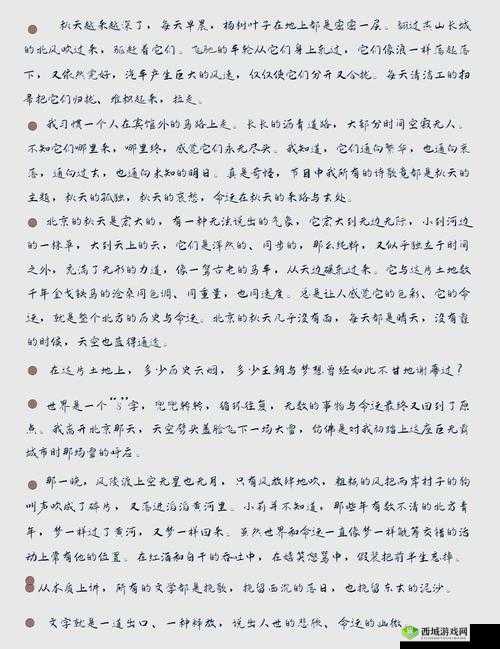 秋天越来越深了，每天早晨，杨树叶子在地上都是密密一层。翻过燕山长城
的北风吹过来，驱赶着它们。飞驰的车轮从它们身上轧过，它们像浪一样荡起落
下，又依然完好，汽车产生巨大的风速，仅仅使它们分开又合拢。每天清洁工的扫
帚把它们归拢、堆积起来，拉走。
我习惯一个人在宾馆外的马路上走。长长的沥青道路，大部分时间空寂无人。
不知它们哪里来，哪里终，感觉它们永无尽头。我知道，它们通向繁华，也通向衰
落，通向过去，也通向未知的明日。真是奇怪，节目中我所有的诗歌竟都是秋天的
主题，秋天的孤独，秋天的哀愁，命运在秋天的来路与去处。
北京的秋天是宏大的，有一种无法说出的气象，它宏大到无边无际，小到河边
的一棵草，大到天上的云，它们是浑然的、同步的，那么纯粹，又似乎独立于时间
之外，充满了无形的力道，像一驾古老的马车，从天边碾轧过来。它与这片土地数
千年金戈铁马的沧桑同色调、同重量，也同速度。总是让人感觉它的色彩、它的命
运，就是整个北方的历史与命运。北京的秋天几乎没有雨，每天都是晴天，没有霾
的时候，天空也蓝得通透。
在这片土地上，多少历史云烟，多少王朝与梦想曾经如此不甘地谢幕过？
世界是一个“8”字，兜兜转转，循环往复，无数的事物与命运最终又回到了原
点。我离开北京那天，天空劈头盖脸飞下一场大雪，仿佛是对我初踏上这座巨无霸
城市时那场雪的呼应。
那一晚，风陵渡上空无星也无月，只有风放肆地吹，粗粝的风把两岸村子的狗
叫声吹成了碎片，又荡进滔滔黄河里。小莉并不知道，那些年有数不清的北方青
年，梦一样过了黄河，又梦一样回来。虽然世界和命运一直像梦一样觥筹交错的活
动上常有他的位置。在红酒和白干的吞吐中，在嬉笑怒骂中，假装把前半生忘掉。
从本质上讲，所有的文学都是挽歌，挽留西沉的落日，也挽留东去的泥沙。
文字就是一道出口、一种释放，说出人世的悲欣、命运的幽微
西域游戏网